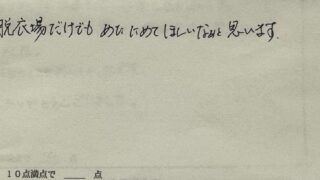 脱衣場だけでも あたためてほしいなぁと思います.
10点満点で ____ 点